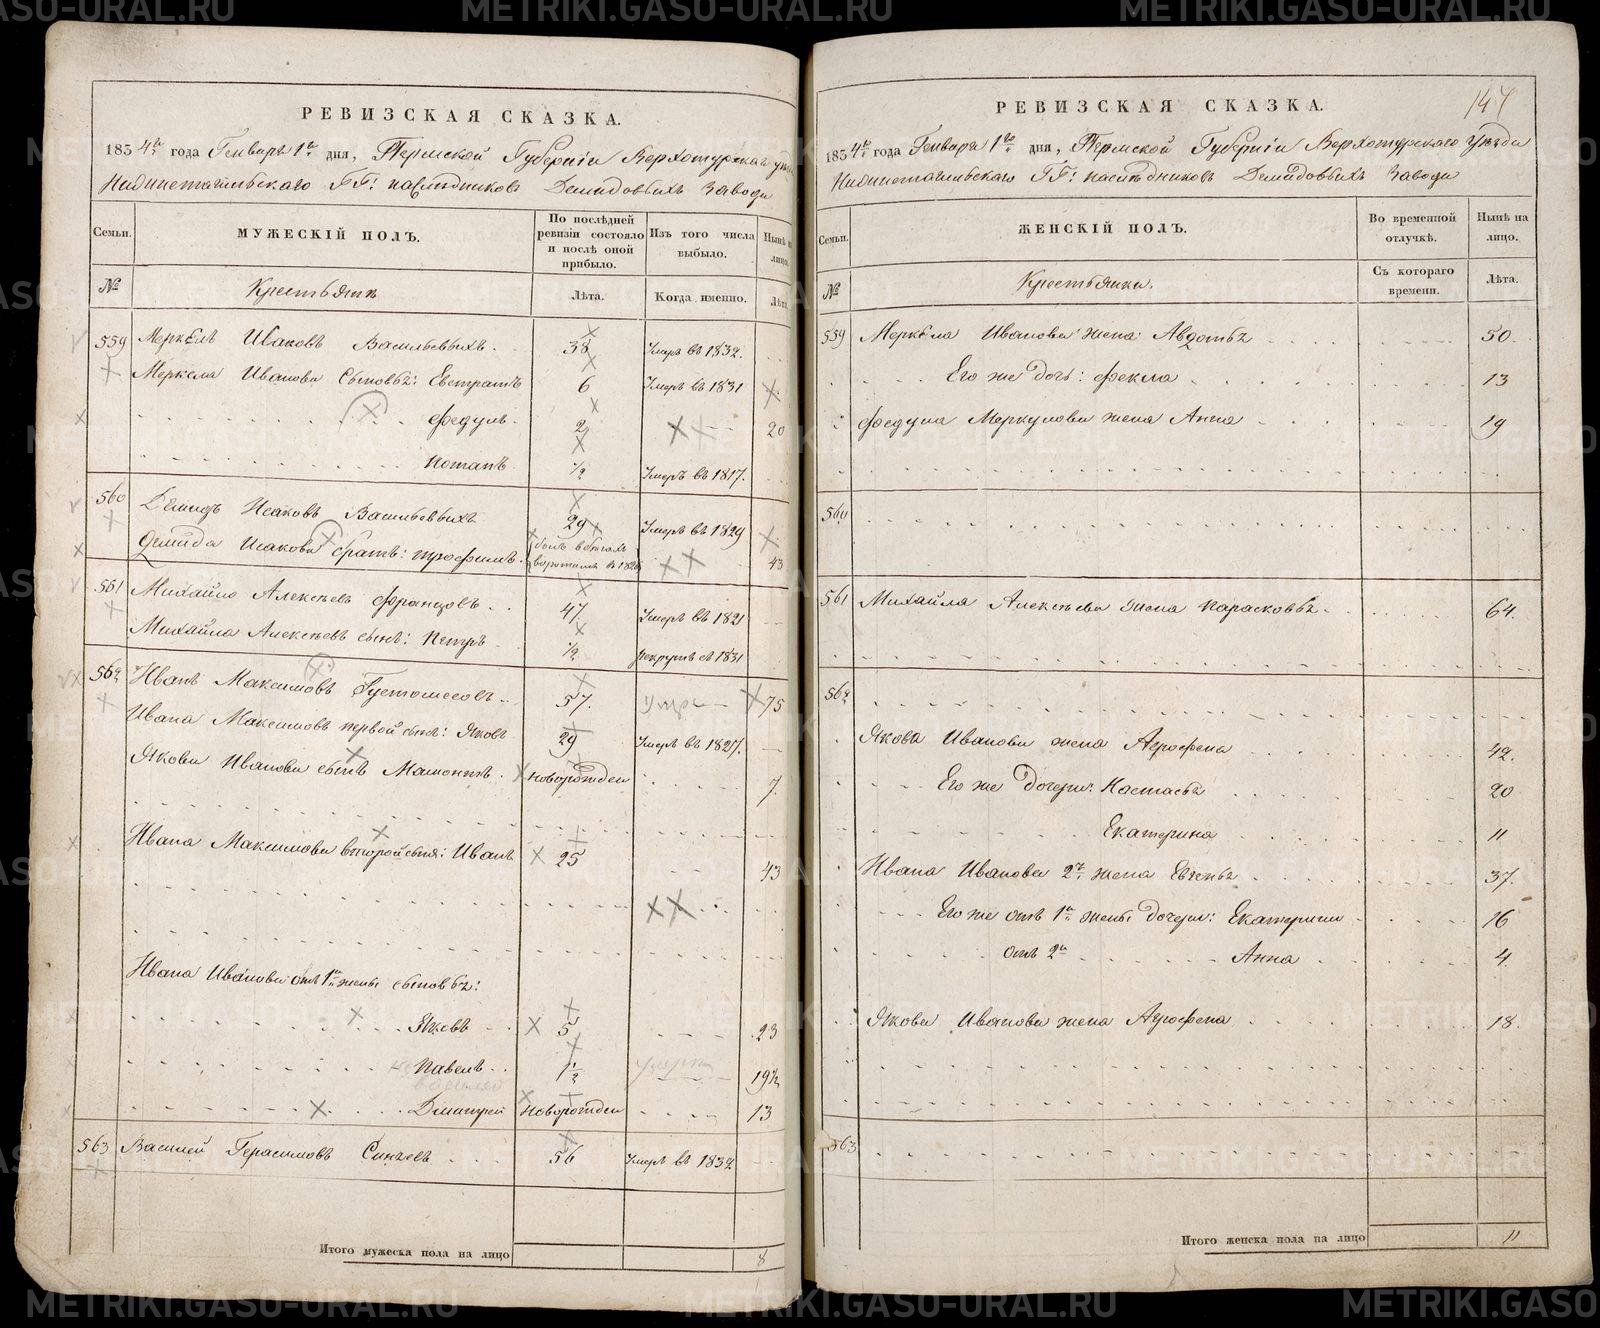 РЕВИЗСКАЯ СКАЗКА.
1834го года Генваря 1го дня, Пермской Губерніи Верхотурскаго уѣз
Нижнетагильскаго ГГ: наслѣдниковъ Демидовыхъ Завода
Семьи.
МУЖЕСКІЙ ПОЛЪ.
По послѣдней ревизіи состояло и послѣ оной прибыло.
Изъ того числа выбыло.
Нынѣ на лицо.
№
Крестьянъ
Лѣта.
Когда именно.
Лѣта
559 Меркулъ Ивановъ Васильевыхъ. 38 Умеръ въ 1832.
Меркула Иванова сыновья: Евстратъ 6 Умеръ въ 1831
Федулъ. 2 20
Потапъ ½ Умеръ въ 1817.
560 Демидъ Исаковъ Васильевыхъ 29 Умеръ въ 1829
Демида Исакова братъ: Трофимъ. былъ в бѣгахъ воротился в 1826 43
561 Михайло Алексѣевъ Францовъ 47. Умеръ въ 1821
Михайла Алексѣевъ сынъ: Петръ ½ рекрутъ съ 1831
562 Иванъ Максимовъ Густомесовъ 57. умеръ 75
Ивана Максимовъ первой сынъ: Яковъ 29 Умеръ въ 1827.
Якова Иванова сынъ Мамонтъ новорожден 7.
Ивана Максимова второй сынъ: Иванъ 25 43
Ивана Иванова отъ 1й жены сыновья:
Яковъ 5 23
Павелъ 1½ умеръ 19½
Дмитрей новорожден 13
563 Василей Герасимовъ Синцевъ 56 Умеръ въ 1832
Итого мужеска пола на лицо 8
147
РЕВИЗСКАЯ СКАЗКА.
1834го года Генваря 1го дня, Пермской Губерніи Верхотурскаго уѣзда
Нижнетагильскаго ГГ: наслѣдниковъ Демидовыхъ Завода
Семьи.
ЖЕНСКІЙ ПОЛЪ.
Во временной отлучкѣ.
Нынѣ на лицо.
№
Крестьянки.
Съ котораго времени.
Лѣта.
559 Меркула Иванова жена Авдотья 50.
Его же дочь: Фекла 13
Федула Меркулова жена Анна 19
560
561 Михайла Алексѣева жена Парасковья 64.
562
Якова Иванова жена Агрофена 42.
Его же дочери: Настасья 20
Екатерина 11
Ивана Иванова 2я жена Евгенья 37.
Его же отъ 1й жены дочери: Екатерина 16
отъ 2й Анна 4.
Якова Иванова жена Агрофена 18.
563
Итого женска пола на лицо 11
METRIKI.GASO-URAL.RU